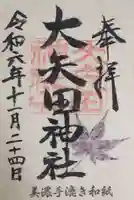 奉拝
大矢田神社
令和六年十一月二十四日
美濃手漉き和紙